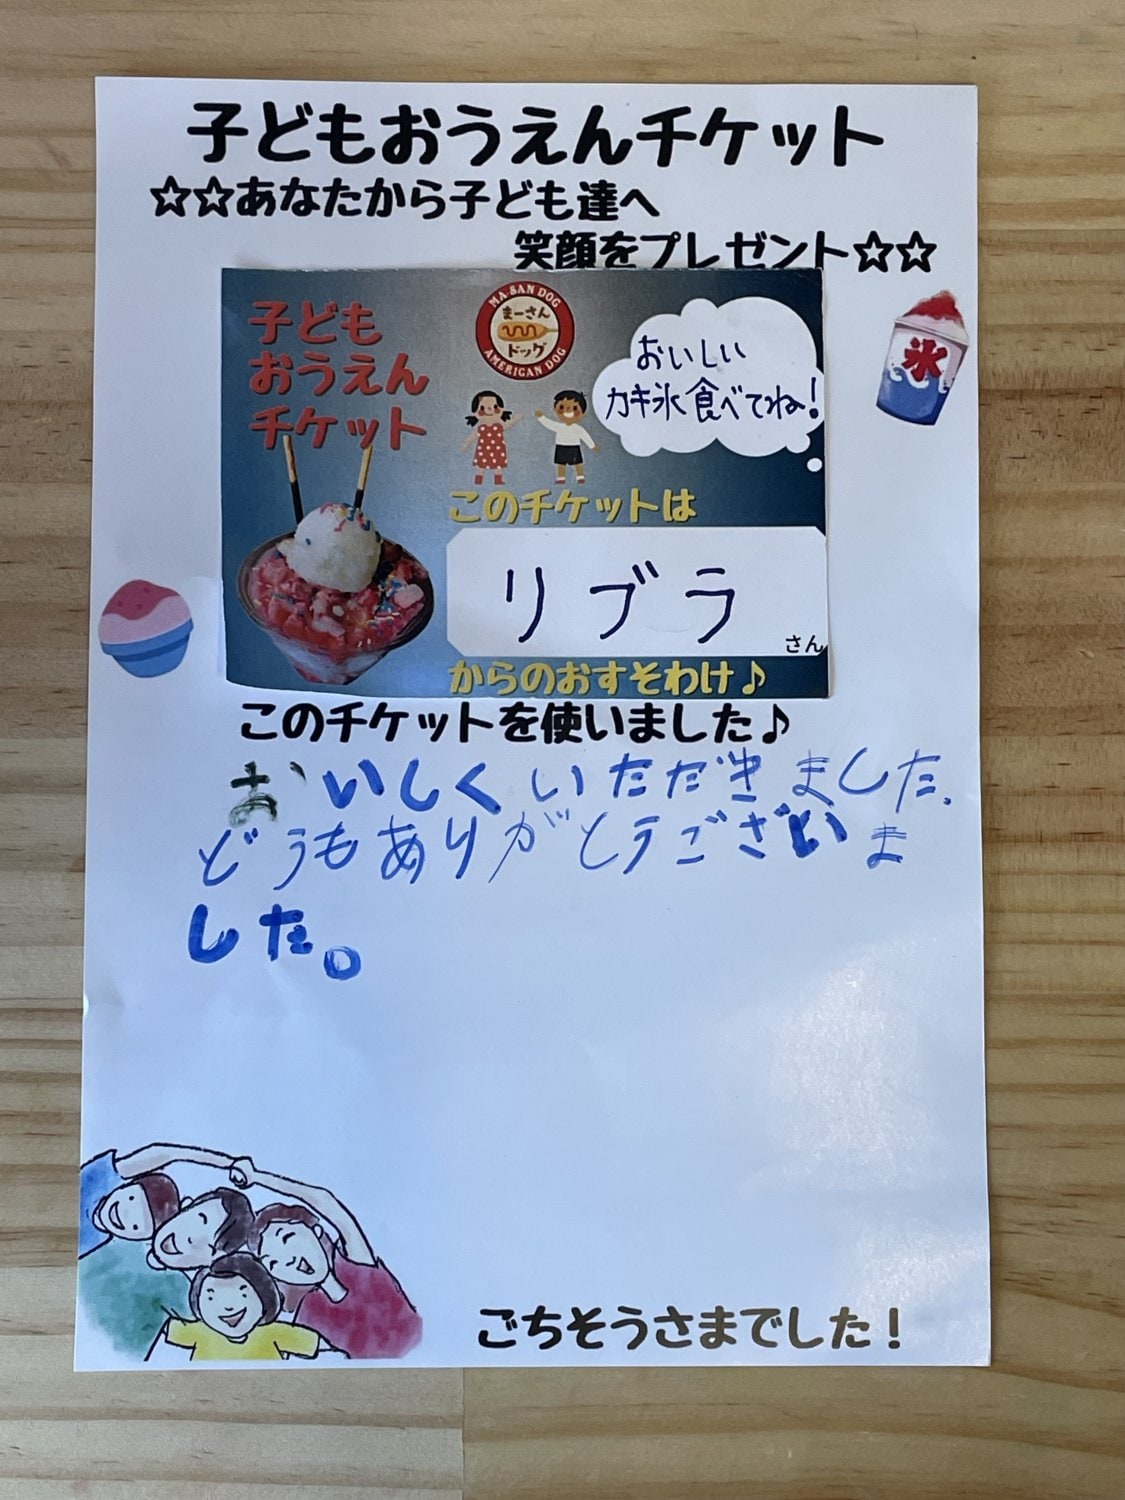 子どもおうえんチケット
☆☆あなたから子ども達へ
笑顔をプレゼント☆☆
子ども
おうえん
チケット
MA SAN DOG
まーさん
ドッグ
AMERICAN DOG
おいしい
カキ氷食べてね!
このチケットは
リブラ
さん
からのおすそわけ♪
氷
このチケットを使いました♪
おいしくいただきました。
どうもありがとうございま
した。
ごちそうさまでした!